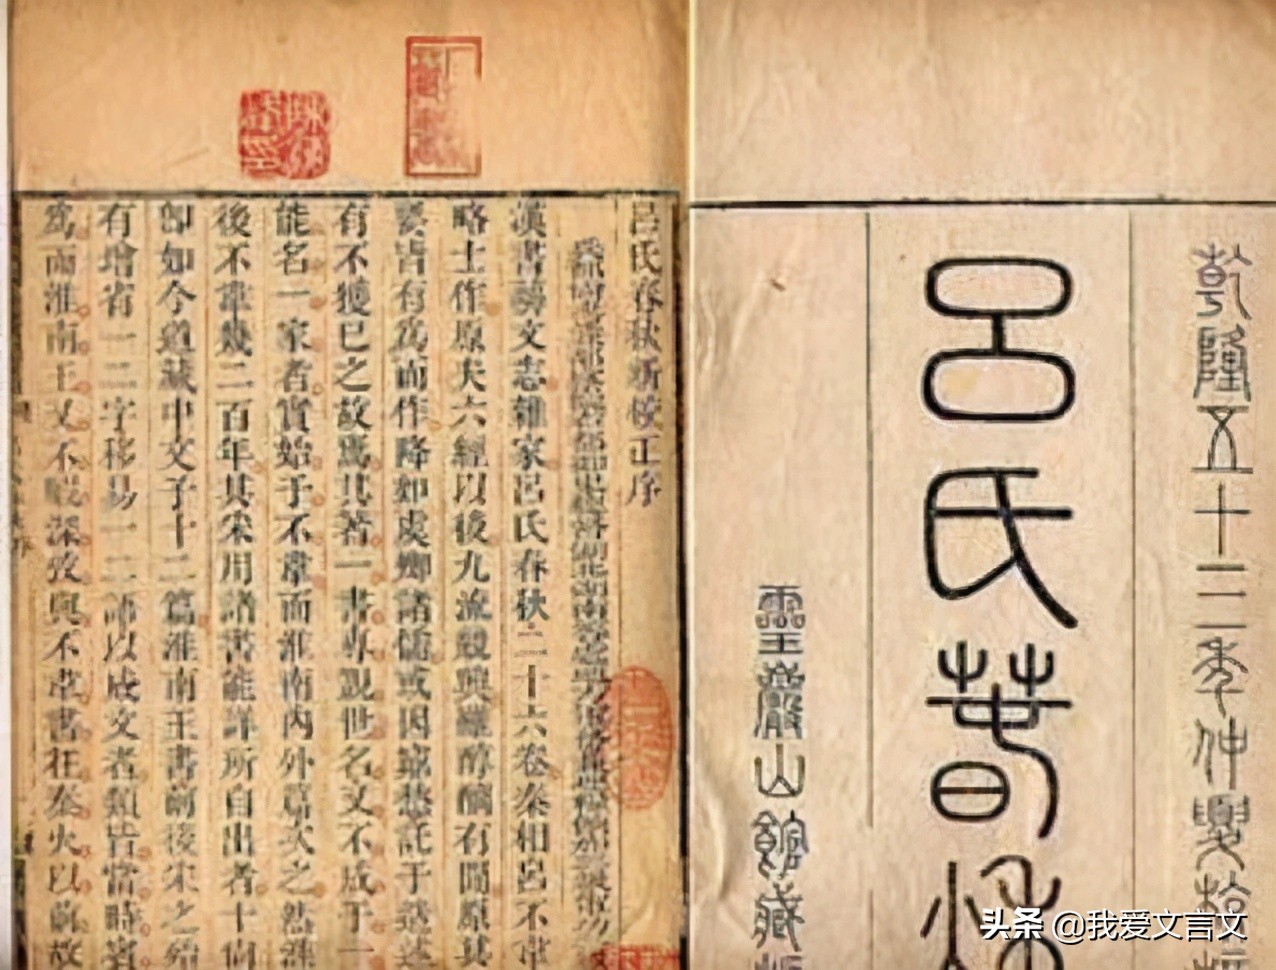 乾隆五十三年仲夏
呂氏春秋
靈巖山館藏
呂氏春秋新校正序
漢書藝文志雜家呂氏春秋二十六卷秦相呂不韋
略士作原夫六經以後九流競興雖醇醨有間原其
意皆有爲而作降如虞卿諸儒或因窮愁託于譔述
有不獲已之故焉其著一書專覬世名又不成于一
能名一家者實始于不韋而淮南內外篇次之然淮
後不韋幾二百年其采用諸書能詳所自出者十尚
卽如今道藏中文子十二篇淮南王書前後采之殆
有增省一二字移易一二語以成文者類皆當時賓
爲而淮南王又不暇深攷與不韋書在秦火以前故
头条 @我爱文言文